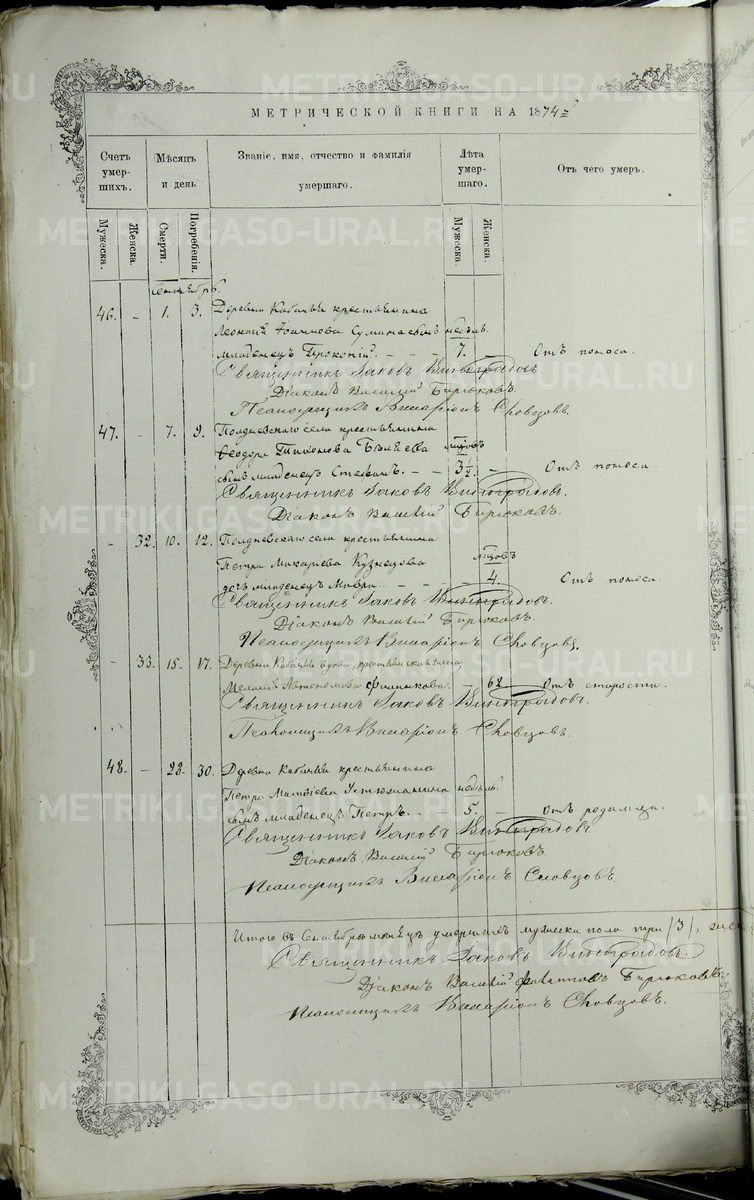 МЕТРИЧЕСКОЙ КНИГИ НА 1874 г
Счетъ умер-шихъ.
Мѣсяцъ и день
Званіе, имя, отчество и фамилія умершаго.
Лѣта умер-шаго.
Отъ чего умеръ.
Мужеска.
Женска.
Смерти.
Погребенія.
Мужеска.
Женска.
Сентябрь.
46. - 1. 3. Деревни крестьянина
Леонтія сынъ недѣль.
младенецъ Прокопій. - - - 7. - Отъ поноса.
Священникъ Іаковъ Виноградовъ.
Діаконъ Василій Бирюковъ.
Псаломщикъ Иларіонъ Словцовъ.
47. - 7. 9. Полдневскаго села крестьянина
Ѳеодора Тихонова
сынъ младенецъ Стефанъ. - - 3½. - Отъ поноса.
Священникъ Іаковъ Виноградовъ.
Діаконъ Василій Бирюковъ.
- 32. 10. 12. Полдневскаго села крестьянина
Петра Макарьева Кузнецова
дочь младенецъ Мавра. - - - 4. Отъ поноса.
Священникъ Іаковъ Виноградовъ.
Діаконъ Василій Бирюковъ.
Псаломщикъ Иларіонъ Словцовъ.
- 33. 15. 17. Деревни вдова, крестьянская жена,
Автономова - 62 Отъ старости.
Священникъ Іаковъ Виноградовъ.
Псаломщикъ Иларіонъ Словцовъ.
48. - 28. 30. Деревни крестьянина
Петра Матвѣева Устюжанина недѣль.
сынъ младенецъ Петръ. - 5. - Отъ родимца.
Священникъ Іаковъ Виноградовъ.
Діаконъ Василій Бирюковъ.
Псаломщикъ Иларіонъ Словцовъ.
Итого въ Сентябрѣ мѣсяцѣ умершихъ мужеска пола три /3/,
Священникъ Іаковъ Виноградовъ.
Діаконъ Василій Бирюковъ.
Псаломщикъ Иларіонъ Словцовъ.
METRIKI.GASO-URAL.RU